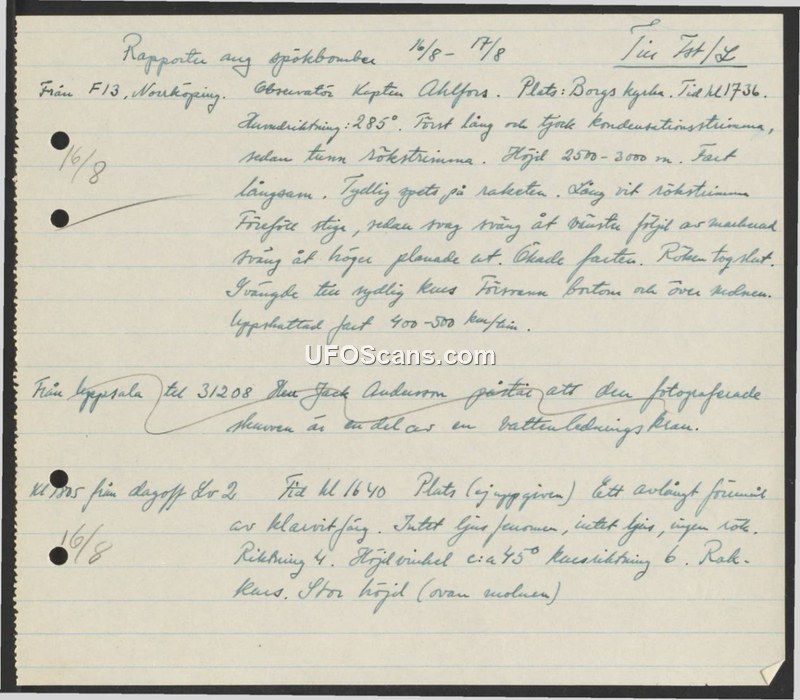 Rapporter ang spökbomber 16/8 – 17/8 Till Fst/L
Från F13, Norrköping. Observatör Kapten Ahlfors. Plats: Borgs kyrka. Tid kl 1736.
Huvudriktning: 285°. Först lång och tjock kondensationsstrimma,
16/8
sedan tunn rökstrimma. Höjd 2500–3000 m. Fart
långsam. Tydlig spets på raketen. Lång vit rökstrimma
Föreföll stiga, sedan svag sväng åt vänster följd av markerad
sväng åt höger planade ut. Ökade farten. Röken tog slut.
Svängde till sydlig kurs Försvann bortom och över molnen.
Uppskattad fart 400–500 km/tim.
UFOScans.com
Från Uppsala tel 31208 Herr Jack Andersson påstår att den fotograferade
skruven är en del av en vattenledningskran.
Kl 1805 från dagoff Lv 2 Tid kl 1640 Plats (ej uppgiven) Ett avlångt föremål
av klarvit färg. Intet ljusfenomen, intet ljus, ingen rök.
16/8
Riktning 4. Höjdvinkel c:a 45° kursriktning 6. Rak-
kurs. Stor höjd (ovan molnen)